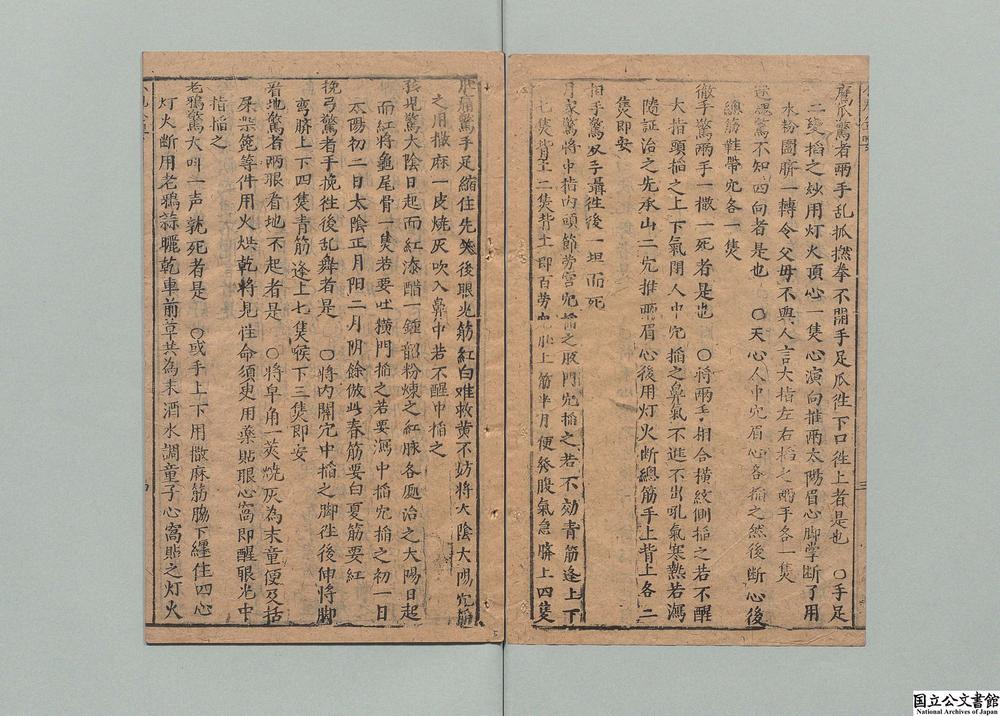 鷹爪驚者兩手乱抓撚拳不開手足爪徃下口徃上者是也　○手足
二弯搯之妙用灯火頂心一隻心演向推两太陽眉心脚掌断了用
水粉圍臍一轉令父母不與人言大指左右搯之兩手各一隻
驚不知四向者是也　○天心人中穴眉心各搯之然後断心後
總筋鞋帶穴各一隻
撒手驚兩手一撒一死者是也　○將兩手相合橫紋側搯之若不醒
大指頭搯之上下氣閉人中穴搯之鼻氣不進不出吼氣寒熱若瀉
隨証治之先承山二穴推兩眉心後用灯火断總筋手上背上各二
隻即安
担手驚双手攝徃後一坦而死
月家驚將中指內頭節劳宫穴搯之版門穴搯之若不効青筋逢上下
七隻背上二隻背上即百劳穴肚上筋半月便發肚氣急臍上四隻
肚痛驚手足縮住先笑後眼光筋紅白难救黄不妨將太陰太陽穴搯
之用撒麻一皮燒灰吹入鼻中若不醒中搯之
孩児驚太陰日起而紅添醋一鍾韶粉煉之紅脉各處治之太陽日起
而紅將龜尾骨一隻若要吐橫門搯之若要瀉中搯穴搯之初一日
太陽初二日太陰正月阳二月阴餘倣此春筋要白夏筋要紅
挽弓驚者手挽徃後乱舞者是　○將內關穴中搯之脚徃後伸將脚
弯臍上下四隻青筋逢上七隻喉下三隻即安
看地驚者兩眼看地不起者是　○將皂角一莢燒灰為末童便及拈
屎柴箢等件用火烘乾將児性命須臾用藥貼眼心窩即醒眼光中
指搯之
老鴉驚大叫一声就死者是　○或手上下用撒麻筋脇下纏住四心
灯火断用老鴉蒜曬乾車前草共為末酒水調童子心窩貼之灯火
国立公文書館
National Archives of Japan